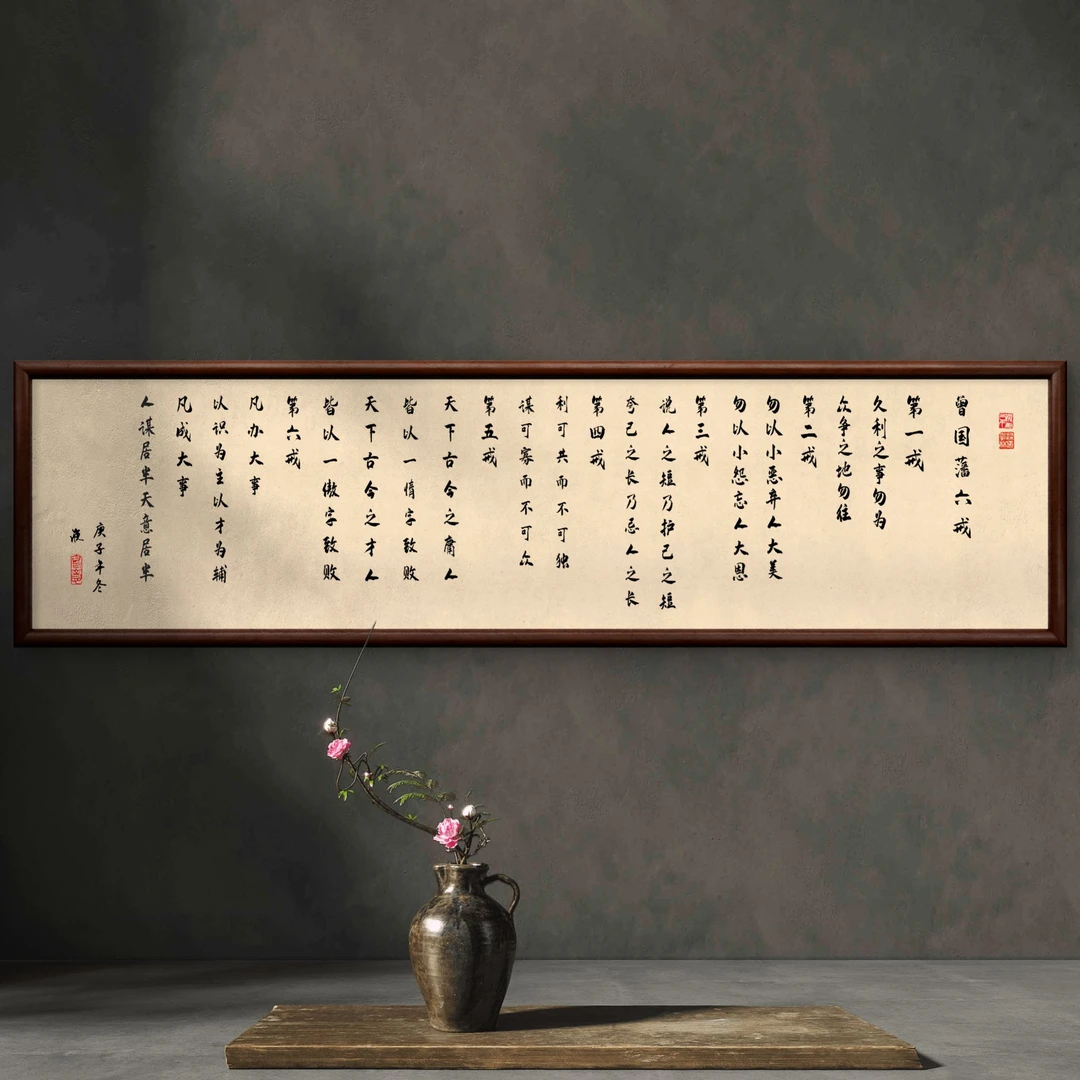 曾国藩六戒
第一戒
久利之事勿为
众争之地勿往
第二戒
勿以小恶弃人大美
勿以小怨忘人大恩
第三戒
说人之短乃护己之短
夸己之长乃忌人之长
第四戒
利可共而不可独
谋可寡而不可众
第五戒
天下古今之庸人
皆以一惰字致败
天下古今之才人
皆以一傲字致败
第六戒
凡办大事
以识为主以才为辅
凡成大事
人谋居半天意居半
庚子年冬